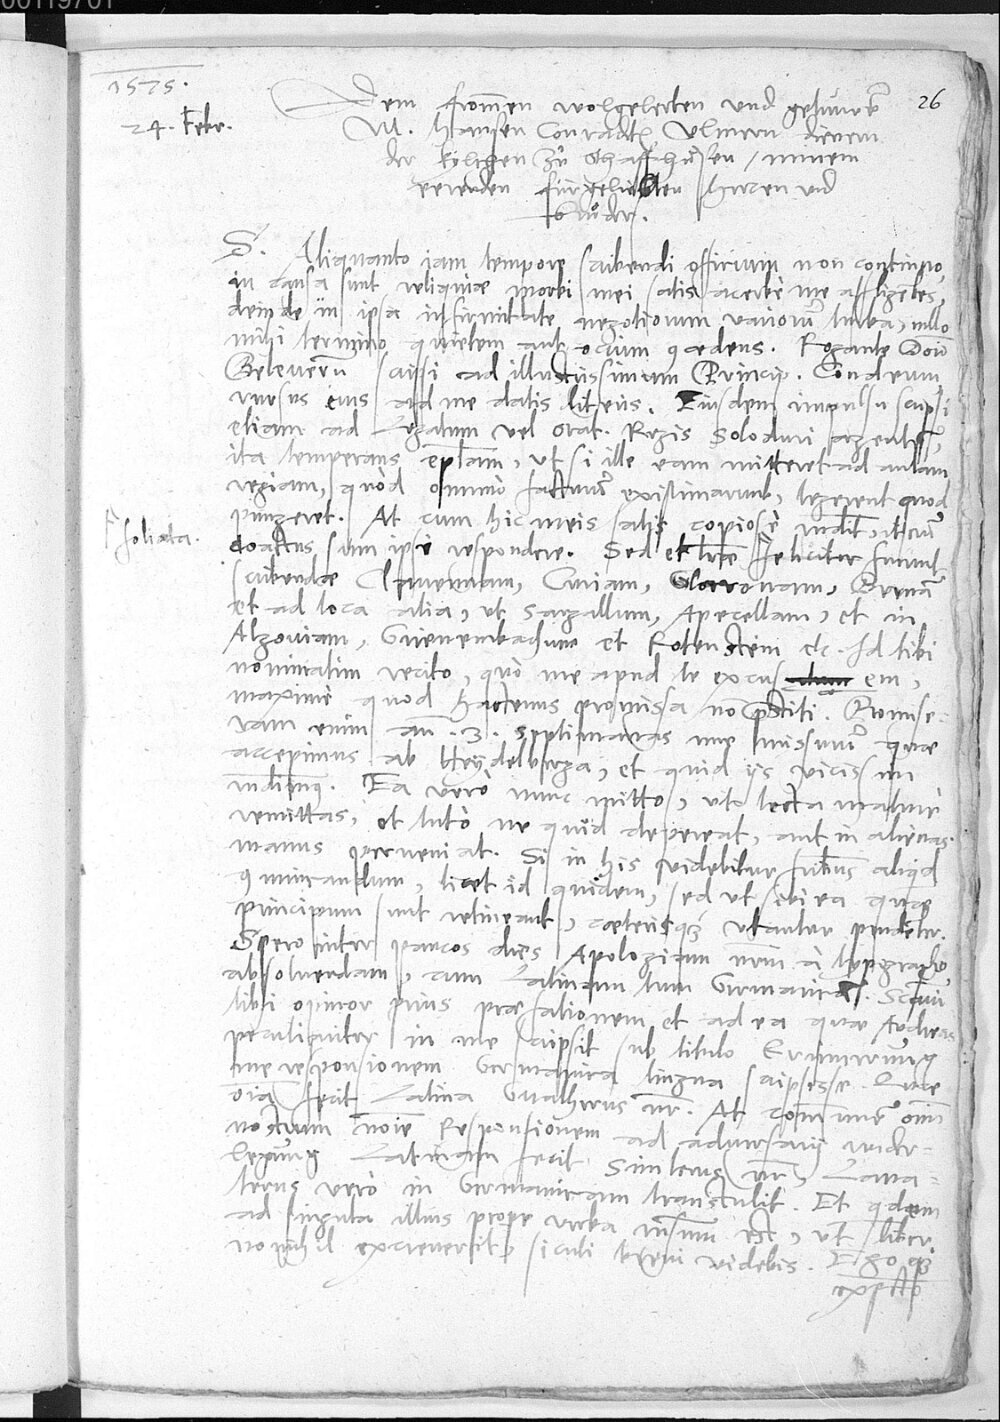 00119701
1575.
24. Febr.
26
Dem frommen wolgelerten und
M. Hansen Conradt Ulmern dienern
der kylchen zu Schaffhusen, minem
eerenden fürgeliebten herren und
bruder.
S. Aliquanto iam tempore scribendi officium non continuo,
in causa sunt reliquiae morbi mei satis acerbe me affligentes,
deinde in ipsa infirmitate negotiorum variorum turba, nullo
mihi termino quietem aut ocium cedens. Rogante Dom
scripsi ad illustrissimum Princip. Condeum,
rursus eius ad me datis literis. Eiusdem impulsu scripsi
etiam ad Legatum vel Orat. Regis Soloduri agentem,
ita temperans eplam, ut si ille eam mitteret ad aulam
regiam, quod omnino facturum existimarunt, legerent quod
pungeret. At cum hic meis satis copiose, iterum
coactus sum ipse respondere. Sed et literae
foliata.
scribendae Clavennam, Curiam, Glaronam, Bernam
et ad loca alia, ut Sangallum, Apecellam, et in
Algoviam, Grienembachum et Rotenstein etc. Id tibi
nominatim recito, quo me apud te excusem,
maxime quod hactenus promissa no pstiti. Promise-
ram enim an .3. septimanas me missurum quae
accepimus ab Heydelberga, et quid ijs vicissim
Ea vero nunc mitto, uto lecta mature
remittas, et tuto ne quid depereat, aut in alienas
manus perveniat. Si in his videbitur fribus aliqd
licet id quidem, sed ut sibi ea quae
principum sunt retineant, caeterisque utantur prudenter.
Spero inter paucos dies Apologiam nram à typographo
absolvendam, cum Latinam tum Germanicam.
tibi opinor prius praefationem et ad ea quae Andreas
peculiariter in me scripsit sub titulo Erinnerung
me responsionem Germanica lingua scripsisse. Quae
oia fecit Latina Gualtherus nr. At communem omnium
nostrum noie Responsionem ad adversarij wider-
legung Latinam fecit Simlerus nr, Lava-
terus vero in Germanicam transtulit. Et qdem
ad singula illius prope verba rnsum est, ut liber
nonnihil excreverit, sicuti brevi videbis. Ergo
expecto